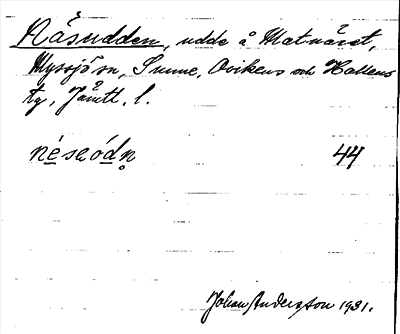 Näsudden, udde å Matnäset,
Myssjö sn, Sunne, Ovikens och Hallens
tg, Jämtl. l.
nèseód̲n̥ 44
Johan Anderson 1931.